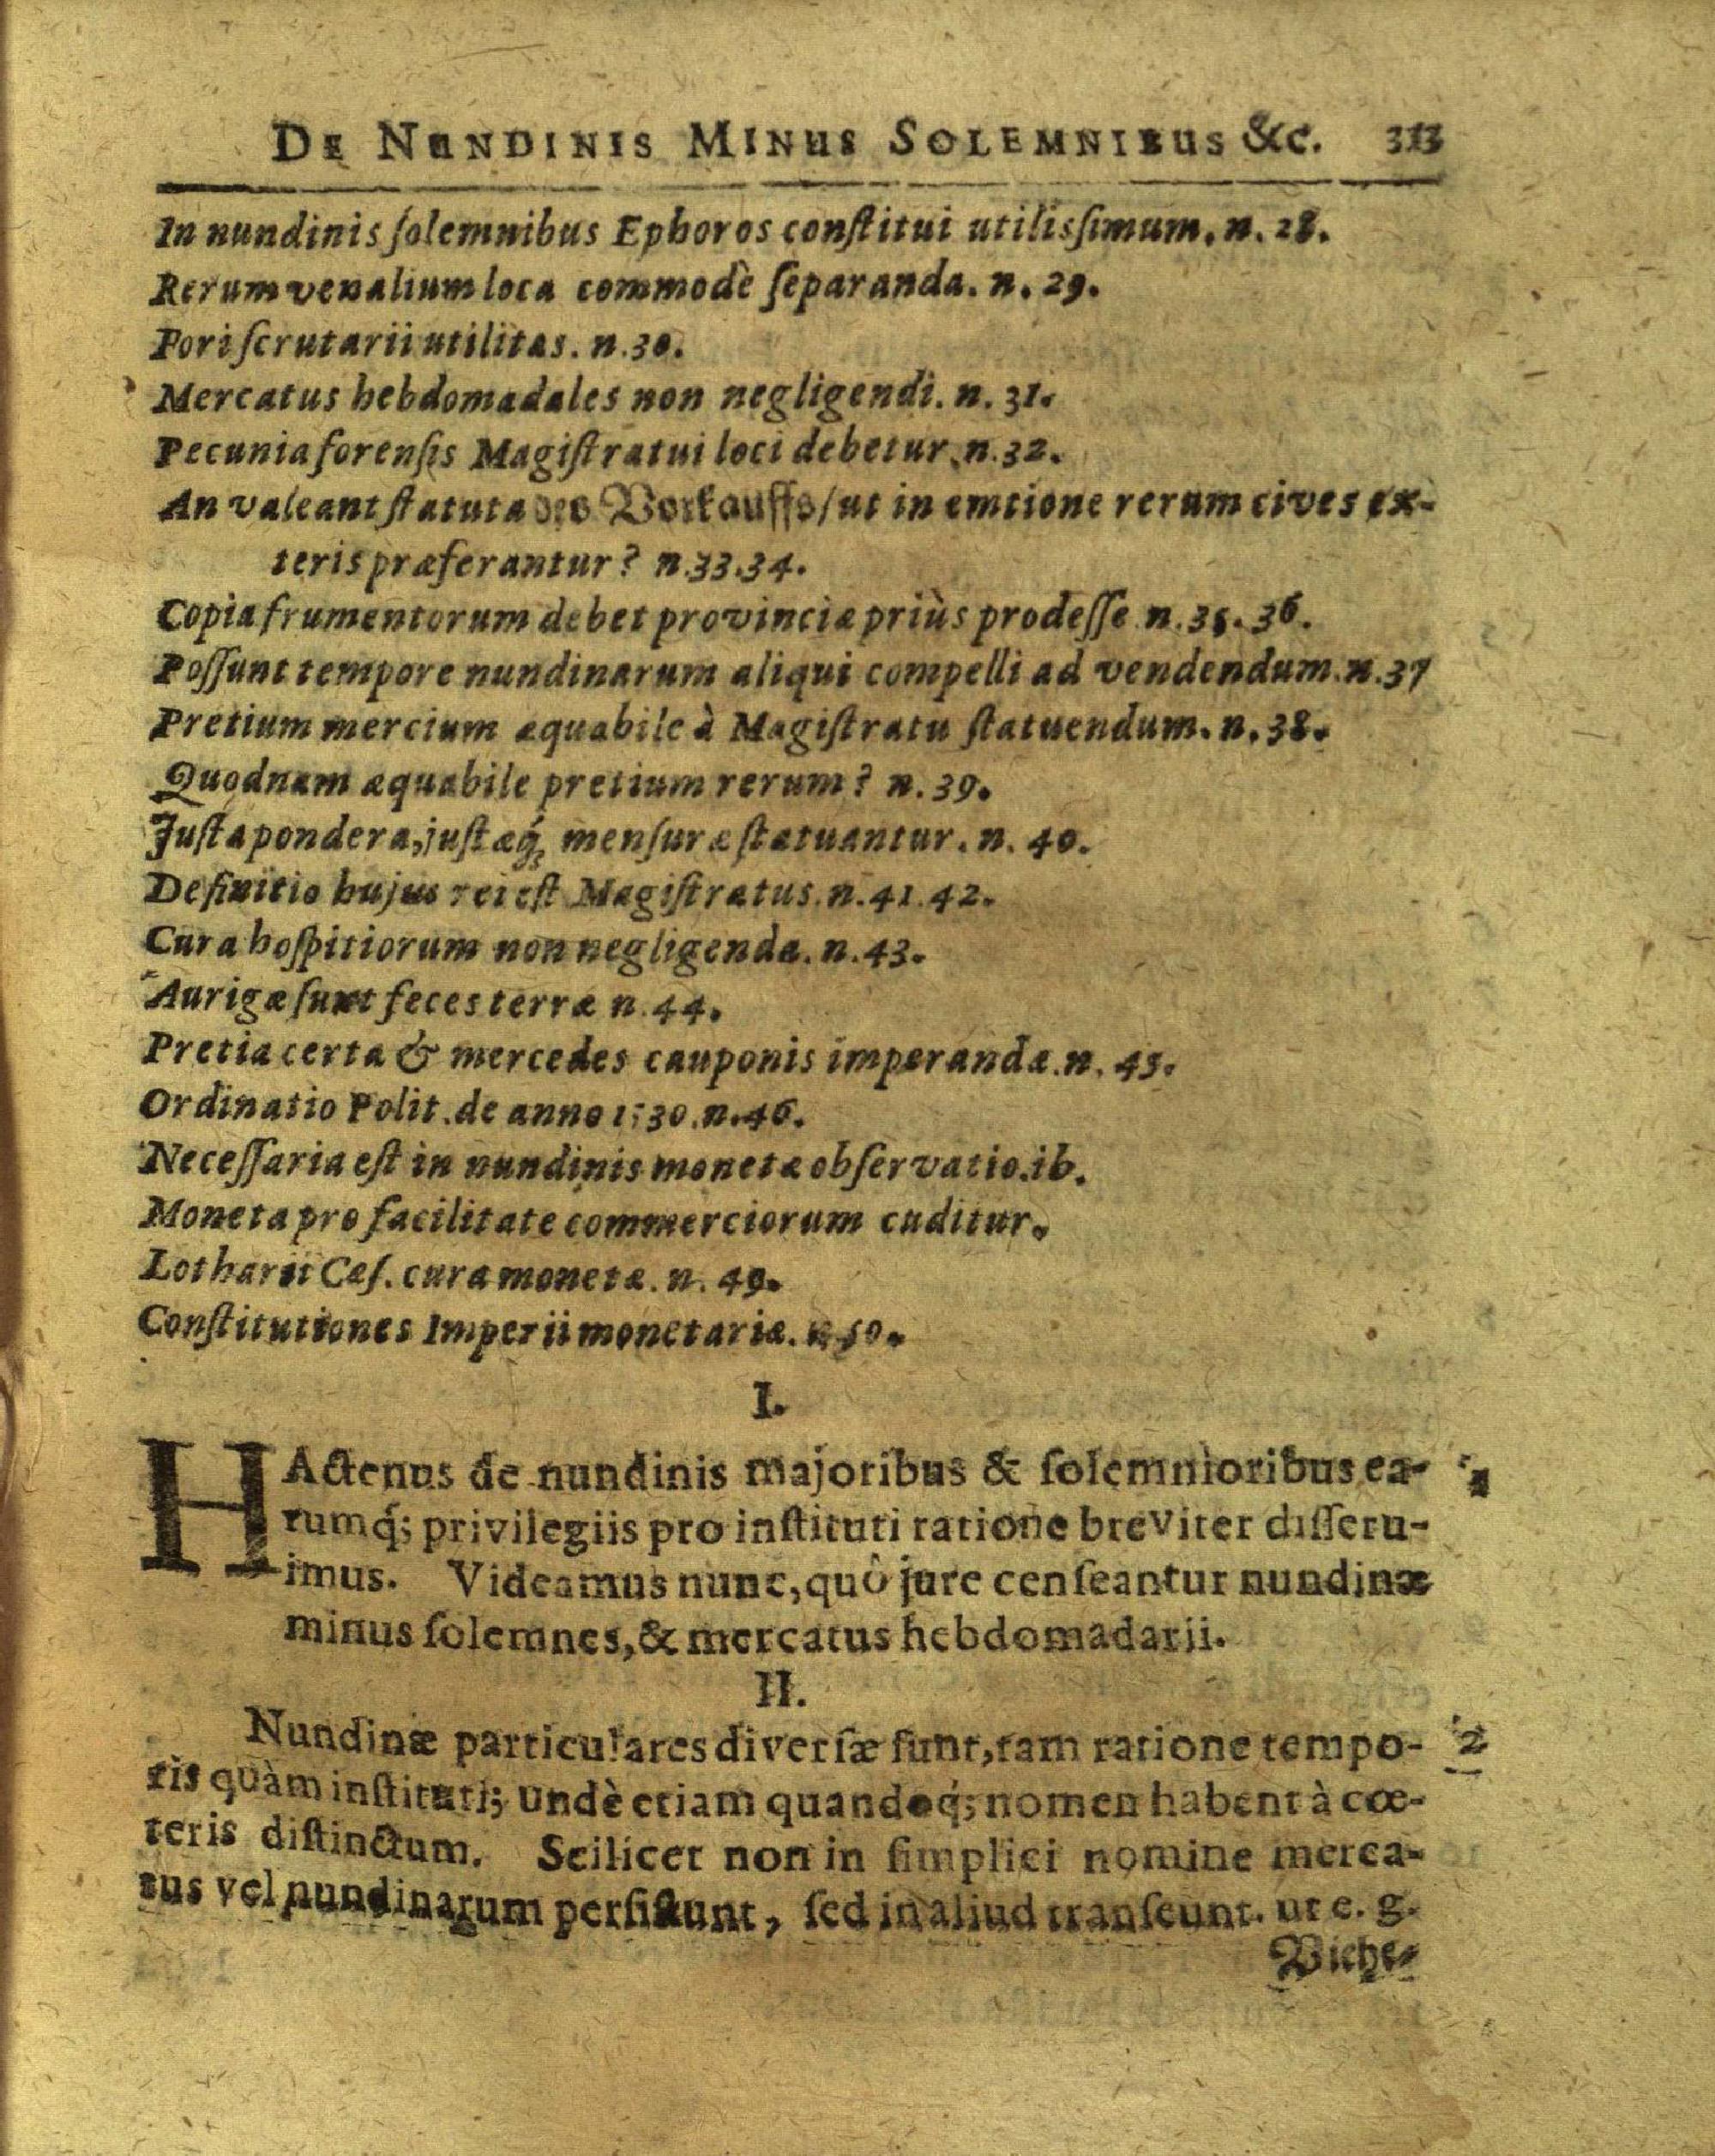 De Nundinis Minus Solemnibus &c. 313
In nundinis ſolemnibus Ephoros conſtitui utilisſimum. n. 28.
Rerum venalium loca commodè ſeparanda. n. 29.
Fori ſcrutarii utilitas. n. 30.
Mercatus hebdomadales non negligendi. n. 31.
Pecunia forenſis Magiſtratui loci debetur. n. 32.
An valeant ſtatuta des Vorkauffs / ut in emtione rerum cives ex-
teris præferantur? n. 33. 34.
Copia frumentorum debet provinciæ priùs prodeſſe n. 35. 36.
Poſſunt tempore nundinarum aliqui compelli ad vendendum. n. 37
Pretium mercium æquabile à Magiſtratu ſtatuendum. n. 38.
Quodnam æquabile pretium rerum? n. 39.
Juſta pondera, juſtæq́; menſuræ ſtatuantur. n. 40.
Definitio hujus rei eſt Magiſtratus. n. 41. 42.
Cura hoſpitiorum non negligenda. n. 43.
Aurigæ ſunt feces terræ n. 44.
Pretia certa & mercedes cauponis imperandæ. n. 45.
Ordinatio Polit. de anno 1530. n. 46.
Neceſſaria eſt in nundinis monetæ obſervatio. ib.
Moneta pro facilitate commerciorum cuditur.
Lotharii Cæſ. cura monetæ. n. 49.
Conſtitutiones Imperii monetariæ. n. 50.
I.
HActenus de nundinis majoribus & ſolemnioribus ea- 1
rumq́; privilegiis pro inſtituti ratione breviter diſſeru-
imus. Videamus nunc, quô jure cenſeantur nundinæ
minus ſolemnes, & mercatus hebdomadarii.
II.
Nundinæ particulares diverſæ ſunt, tam ratione tempo- 2
ris quàm inſtituti; undè etiam quandoq́; nomen habent à cœ-
teris diſtinctum. Scilicet non in ſimplici nomine merca-
tus vel nundinarum perſiſtunt, ſed in aliud tranſeunt. ut e. g.
Viehe-